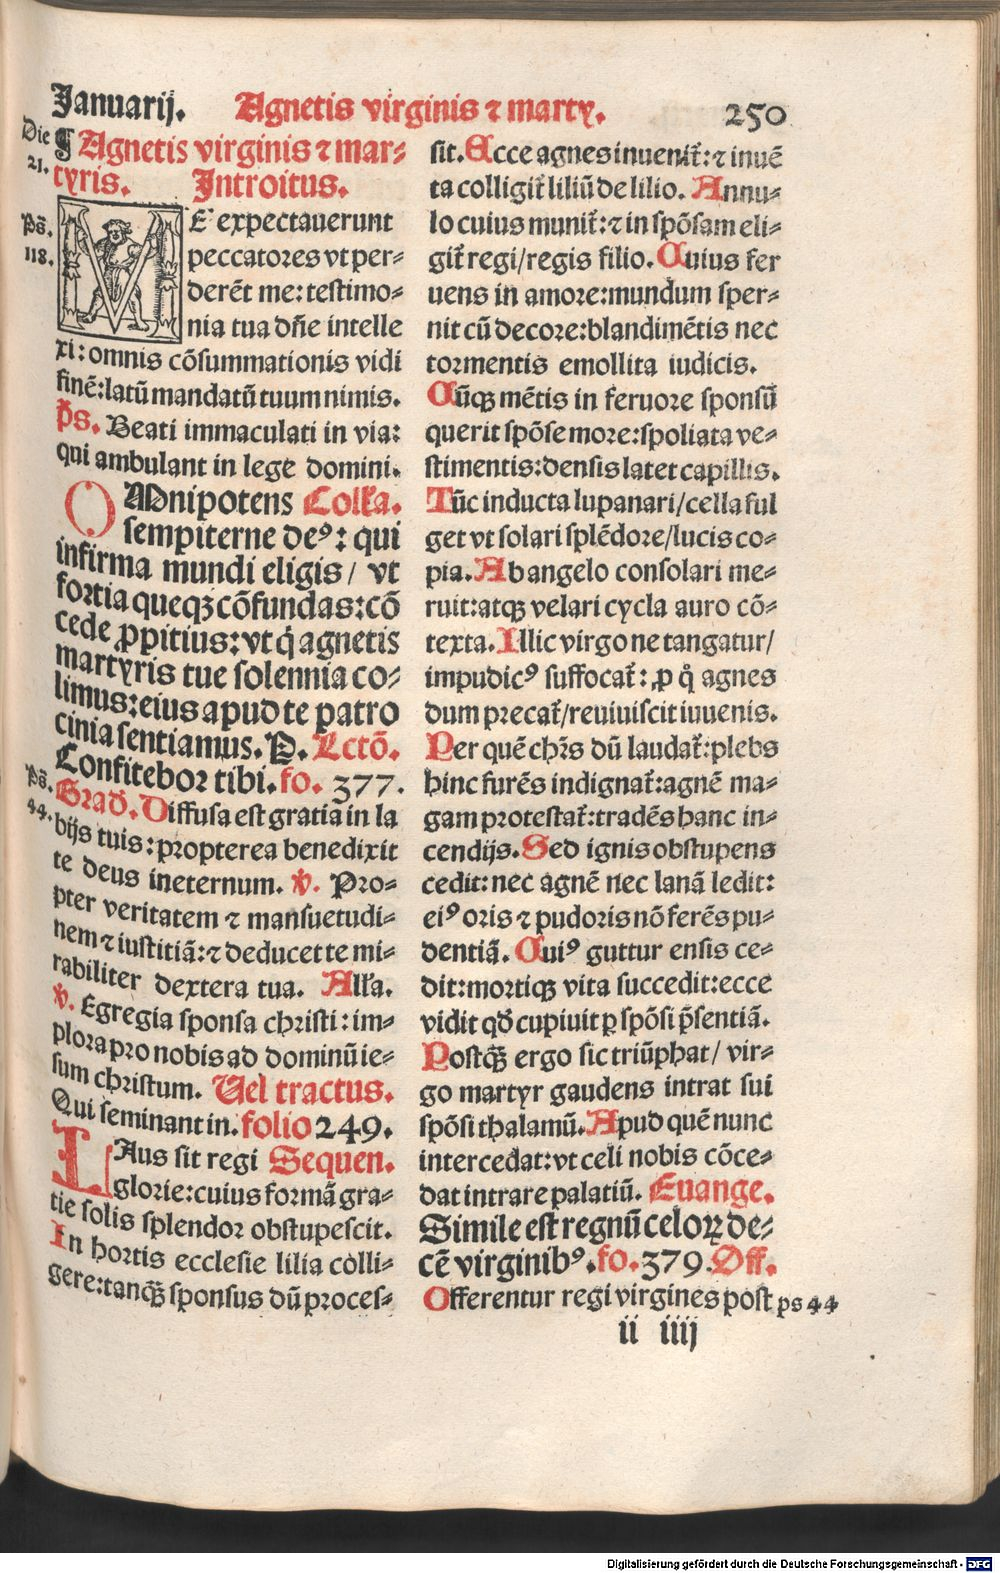 Januarij. Agnetis virginis ⁊ marty. 250
Die
21.
¶ Agnetis virginis ⁊ mar⸗
tyris. Introitus.
Ps̄.
118.
ME expectauerunt
peccatores vt per⸗
derēt me: testimo⸗
nia tua dn̄e intelle
xi: omnis cōsummationis vidi
finē: latū mandatū tuum nimis.
Ps̄. Beati immaculati in via:
qui ambulant in lege domini.
OMnipotens Coll'a.
sempiterne deꝰ: qui
infirma mundi eligis / vt
fortia queqꝫ cōfundas: cō
cede ꝓpitius: vt q̇ agnetis
martyris tue solennia co⸗
limus: eius apud te patro
cinia sentiamus. P. Lctō.
Confitebor tibi. fo. 377.
Ps̄.
44.
Grad'. Diffusa est gratia in la
bijs tuis: propterea benedixit
te deus ineternum. ℣. Pro⸗
pter veritatem ⁊ mansuetudi⸗
nem ⁊ iustitiā: ⁊ deducet te mi⸗
rabiliter dextera tua. All'a.
℣. Egregia sponsa christi: im⸗
plora pro nobis ad dominū ie⸗
sum christum. Uel tractus.
Qui seminant in. folio 249.
LAus sit regi Sequen.
glorie: cuius formā gra⸗
tie solis splendor obstupescit.
In hortis ecclesie lilia colli⸗
gere: tanqꝫ̄ sponsus dū proces⸗
sit. Ecce agnes inuenit᷑: ⁊ inuē
ta colligit᷑ liliū de lilio. Annu⸗
lo cuius munit᷑: ⁊ in spōsam eli⸗
git᷑ regi / regis filio. Cuius fer
uens in amore: mundum sper⸗
nit cū decore: blandimētis nec
tormentis emollita iudicis.
Cūqꝫ mētis in feruore sponsū
querit spōse more: spoliata ve⸗
stimentis: densis latet capillis.
Tūc inducta lupanari / cella ful
get vt solari splēdore / lucis co⸗
pia. Ab angelo consolari me⸗
ruit: atqꝫ velari cycla auro cō⸗
texta. Illic virgo ne tangatur /
impudicꝰ suffocat᷑: ꝓ q̇ agnes
dum precat᷑ / reuiuiscit iuuenis.
Per quē chr̄s dū laudat᷑: plebs
hinc furēs indignat᷑: agnē ma⸗
gam protestat᷑: tradēs hanc in⸗
cendijs. Sed ignis obstupens
cedit: nec agnē nec lanā ledit:
eiꝰ oris ⁊ pudoris nō ferēs pu⸗
dentiā. Cuiꝰ guttur ensis ce⸗
dit: mortiqꝫ vita succedit: ecce
vidit qd' cupiuit ꝑ spōsi p̄sentiā.
Postqꝫ̄ ergo sic triūphat / vir⸗
go martyr gaudens intrat sui
spōsi thalamū. Apud quē nunc
intercedat: vt celi nobis cōce⸗
dat intrare palatiū. Euange.
Simile est regnū celoꝝ de⸗
cē virginibꝰ. fo. 379. Off.
Offerentur regi virgines post ps 44
ii iiij
Digitalisierung gefördert durch die Deutsche Forschungsgemeinschaft - DFG